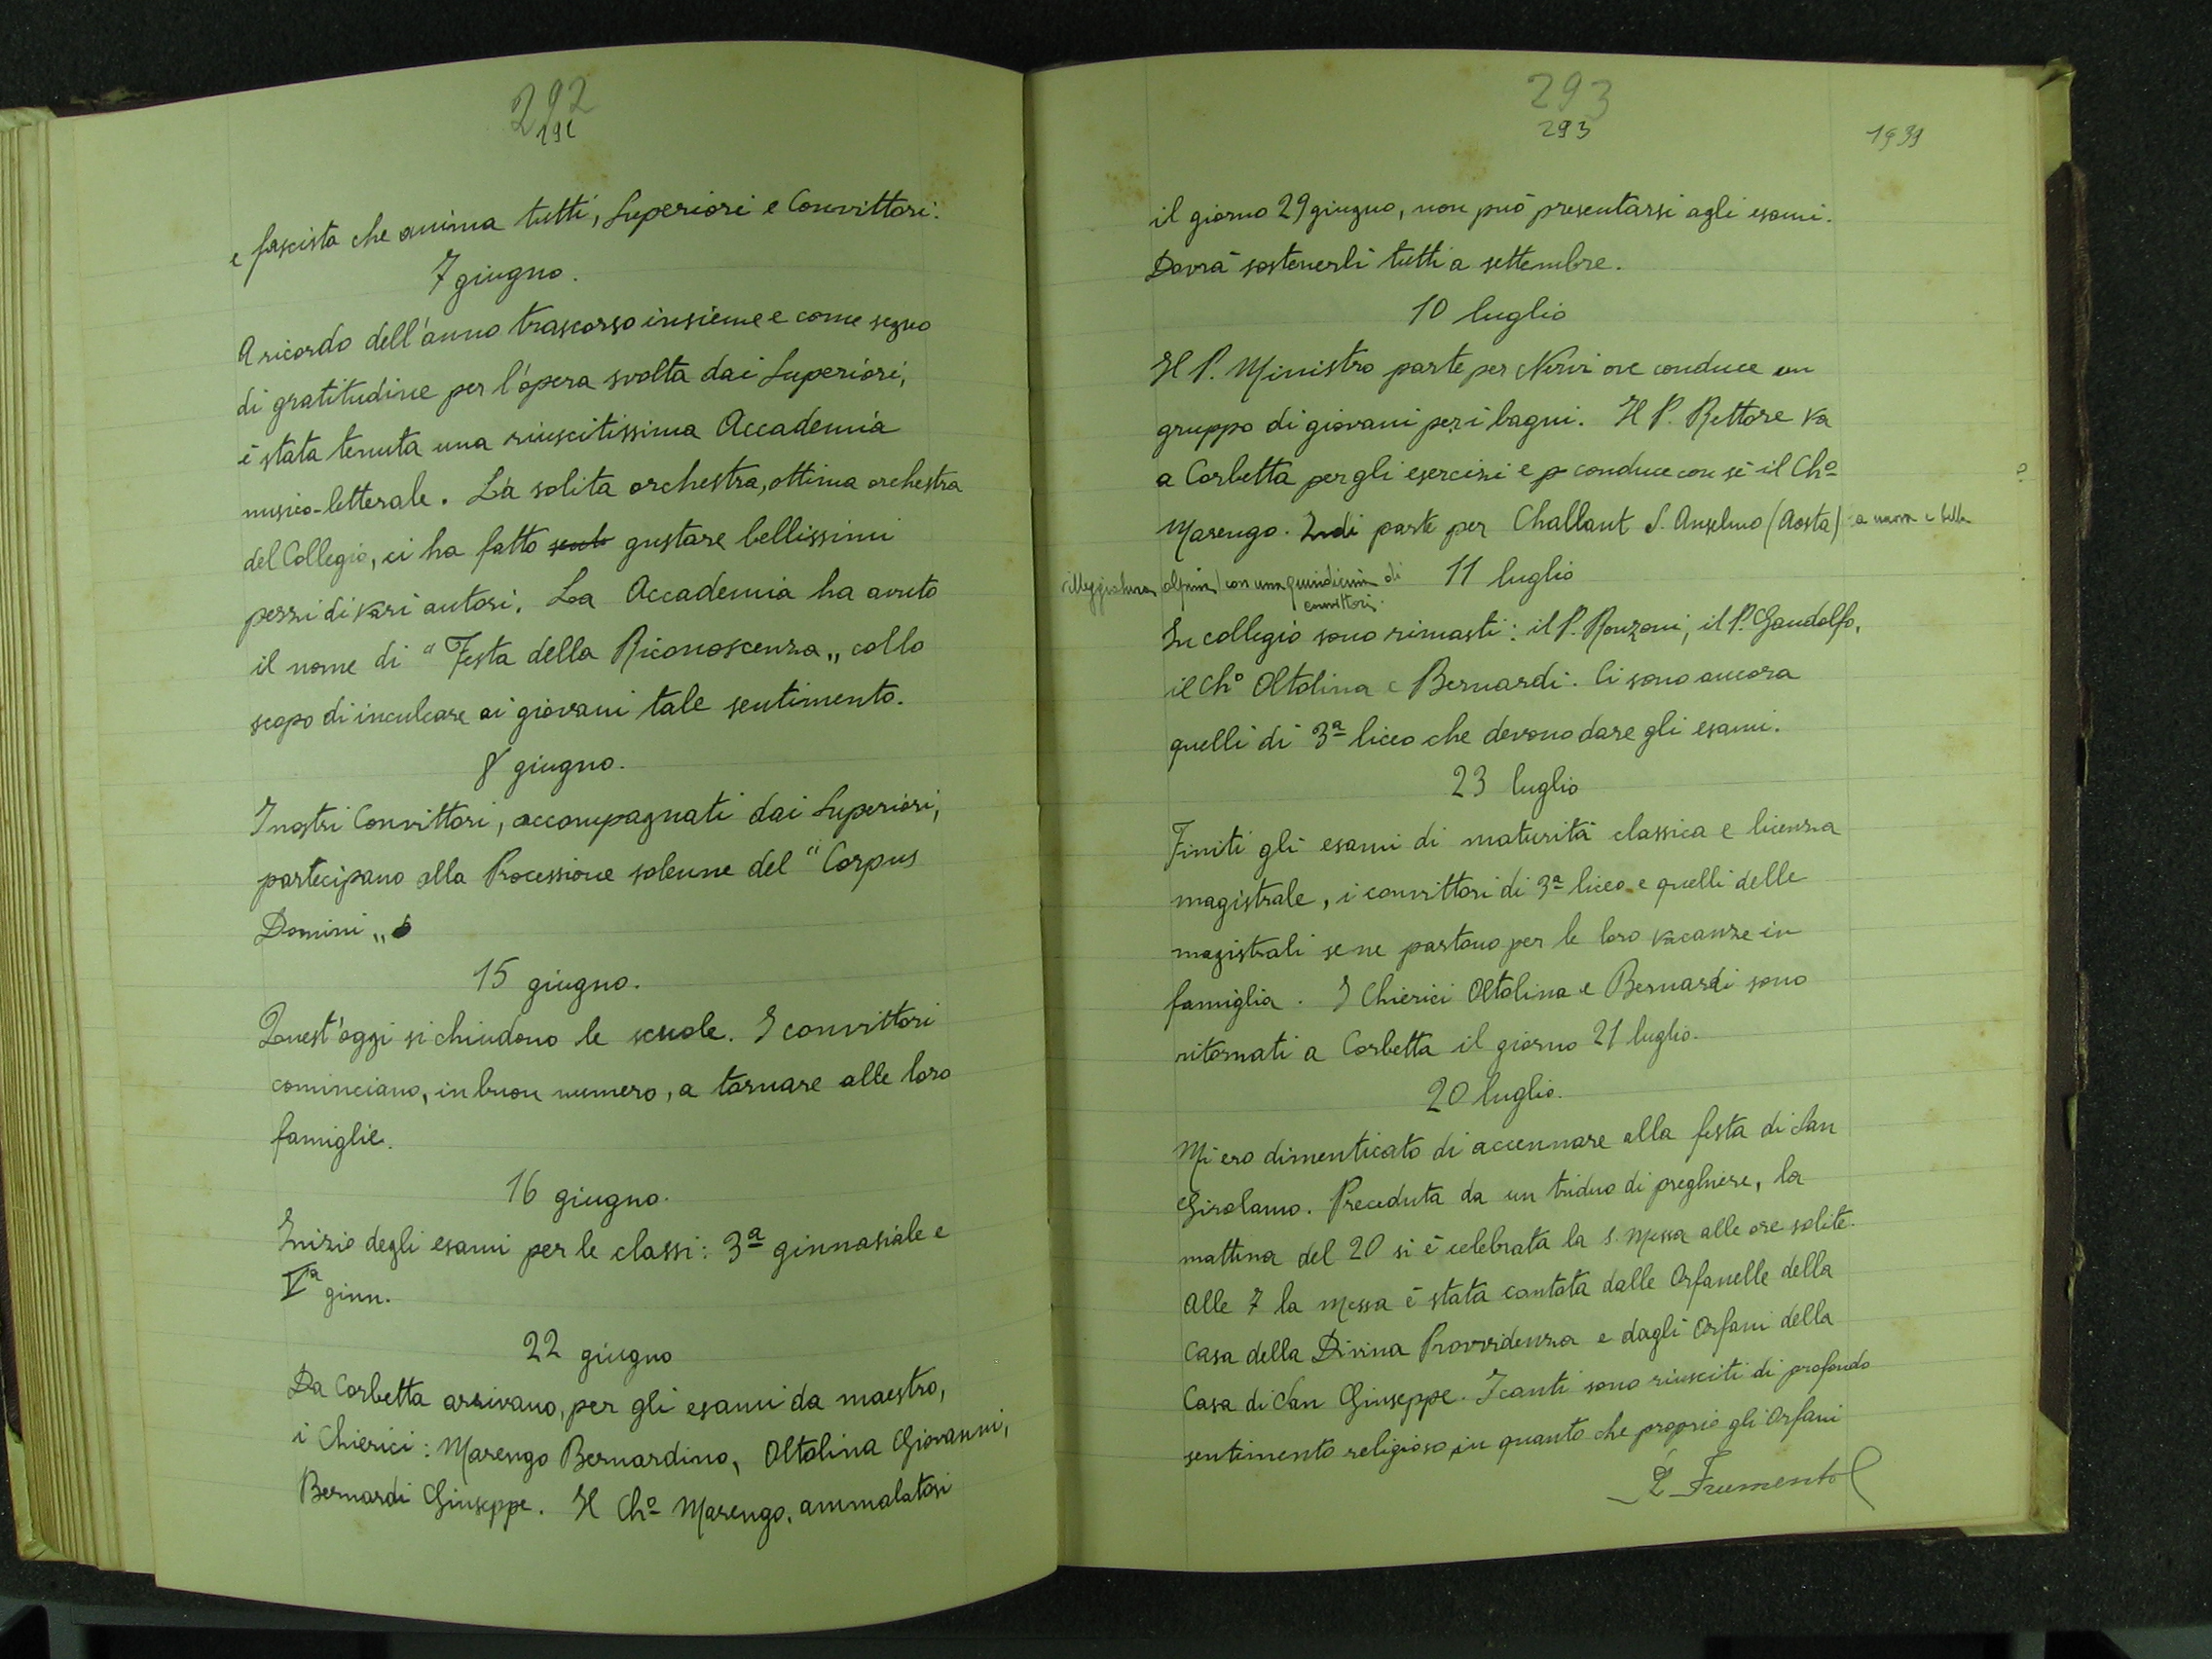 292
292
e fascista che anima tutti, Superiori e Convittori.
7 giugno.
A ricordo dell'anno trascorso insieme e come segno
di gratitudine per l'opera svolta dai Superiori,
è stata tenuta una riuscitissima Accademia
musico-letterale. La solita orchestra, ottima orchestra
del Collegio, ci ha fatto gustare bellissimi
pezzi di vari autori. La Accademia ha avuto
il nome di "Festa della Riconoscenza„ collo
scopo di inculcare ai giovani tale sentimento.
8 giugno.
I nostri Convittori, accompagnati dai Superiori,
partecipano alla Processione solenne del "Corpus
Domini„
15 giugno.
Quest'oggi si chiudono le scuole. I convittori
cominciano, in buon numero, a tornare alle loro
famiglie.
16 giugno.
Inizio degli esami per le classi: 3ª ginnasiale e
Vª ginn.
22 giugno
Da Corbetta arrivano, per gli esami da maestro,
i Chierici: Marengo Bernardino, Oltolina Giovanni,
Bernardi Giuseppe. Il Chº Marengo, ammalatosi
293
293
1939
il giorno 29 giugno, non può presentarsi agli esami.
Dovrà sostenerli tutti a settembre.
10 luglio
Il P. Ministro parte per Nervi ove conduce un
gruppo di giovani per i bagni. Il P. Rettore va
a Corbetta per gli esercizi e p conduce con sè il Chº
?
Marengo. Indi parte per Challant S. Anselmo (Aosta) a nuova e bella
villeggiatura alpina) con una quindicina di
convittori.
11 luglio
In collegio sono rimasti: il P. Ronzoni, il P. Gandolfo,
il Chº Oltolina e Bernardi. Ci sono ancora
quelli di 3ª liceo che devono dare gli esami.
23 luglio
Finiti gli esami di maturità classica e licenza
magistrale, i convittori di 3ª liceo e quelli delle
magistrali se ne partono per le loro vacanze in
famiglia. I Chierici Oltolina e Bernardi sono
ritornati a Corbetta il giorno 21 luglio.
20 luglio.
Mi ero dimenticato di accennare alla festa di San
Girolamo. Preceduta da un triduo di preghiere, la
mattina del 20 si è celebrata la S. Messa alle ore solite.
Alle 7 la Messa è stata cantata dalle Orfanelle della
Casa della Divina Provvidenza e dagli Orfani della
Casa di San Giuseppe. I canti sono riusciti di profondo
sentimento religioso, in quanto che proprio gli Orfani
P. Frumento